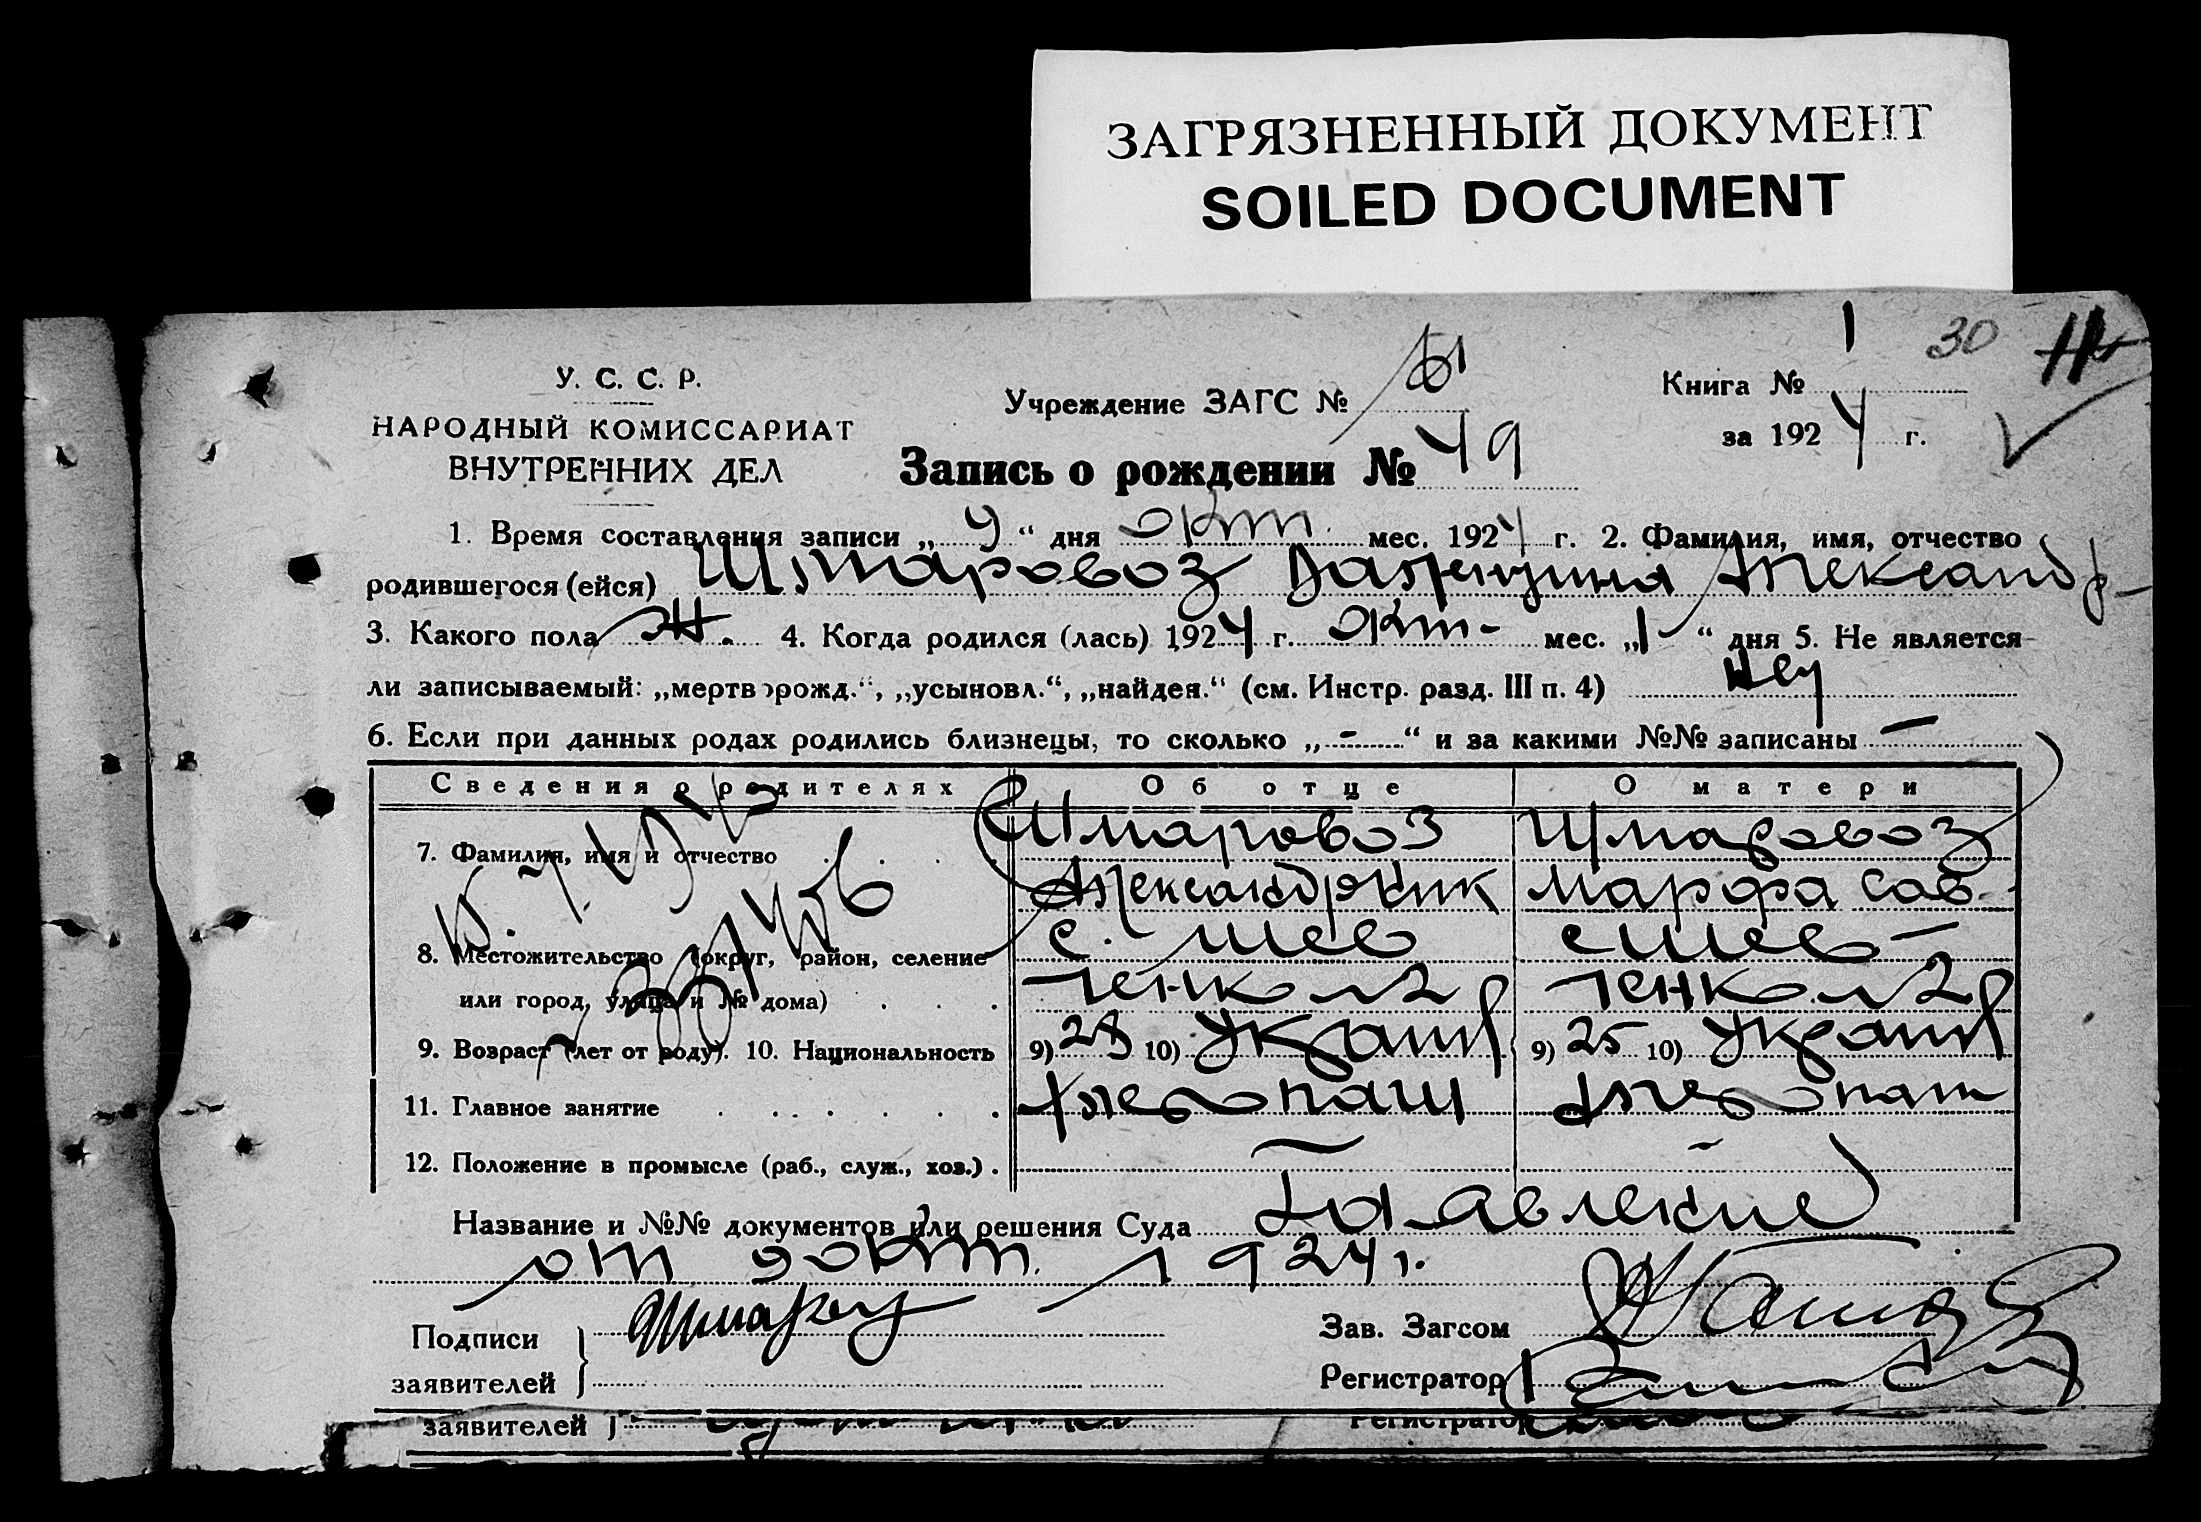 ЗАГРЯЗНЕННЫЙ ДОКУМЕНТ
SOILED DOCUMENT
30
У. С. С. Р.
НАРОДНЫЙ КОМИССАРИАТ
ВНУТРЕННИХ ДЕЛ
Учреждение ЗАГС №
Книга № 1
за 1924 г.
Запись о рождении № 49
1. Время составления записи „9“ дня окт. мес. 1924 г. 2. Фамилия, имя, отчество
родившегося (ейся) Шмаровоз Валентина Александр-
3. Какого пола ж. 4. Когда родился (лась) 1924 г. окт- мес. „1“ дня 5. Не является
ли записываемый: „мертворожд.“, „усыновл.“, „найден.“ (см. Инстр. разд. III п. 4) нет
6. Если при данных родах родились близнецы, то сколько „-“ и за какими №№ записаны —
Сведения о родителях Об отце О матери
7. Фамилия, имя и отчество Шмаровоз Шмаровоз
Александр Ник Марфа Сав-
8. Местожительство (округ, район, селение с. Шев с Шев-
или город, улица и № дома) ченко №2 ченко №2
9. Возраст (лет от роду). 10. Национальность 9) 28 10) Украин 9) 25 10) Украин
11. Главное занятие хлебопаш хлебопаш
12. Положение в промысле (раб., служ., хоз.) . — -
Название и №№ документов или решения Суда
от 9 окт. 1924 г.
Подписи
Зав. Загсом
заявителей
Регистратор
заявителей
Регистратор